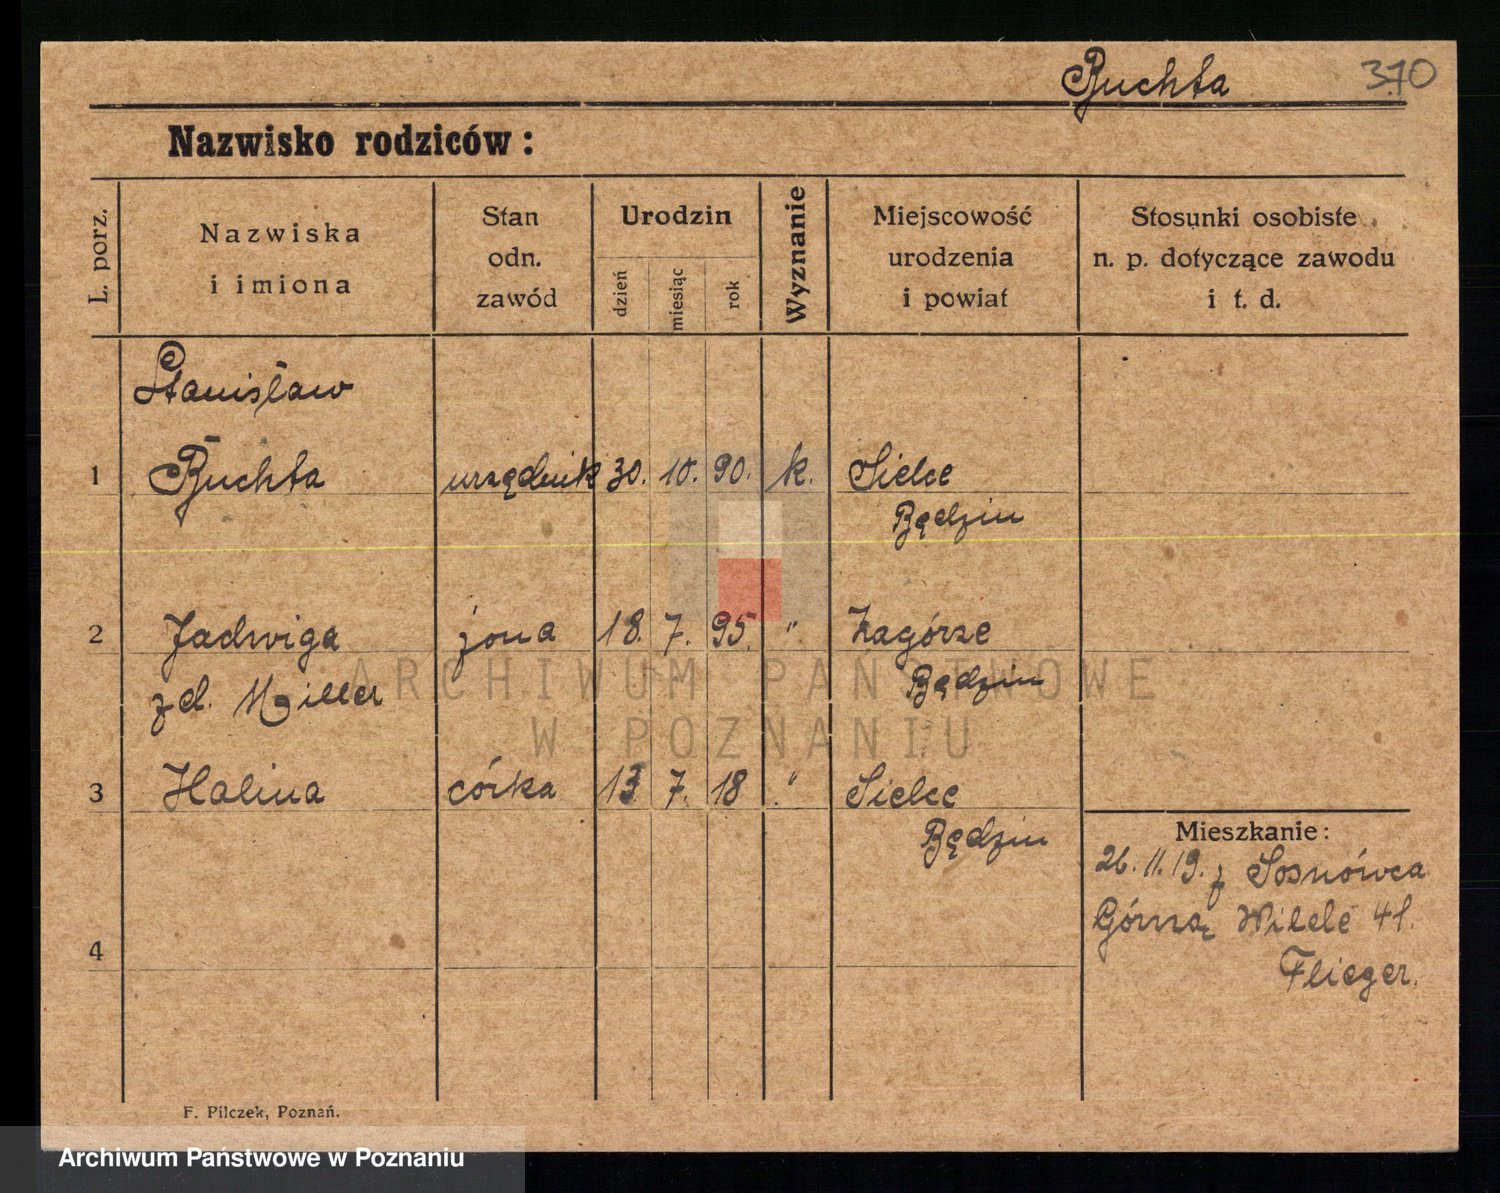 Buchta 370
Nazwisko rodziców:
L. porz.
Nazwiska
i imiona
Stan
odn.
zawód
Urodzin
dzień
miesiąc
rok
Wyznanie
Miejscowość
urodzenia
i powiat
Stosunki osobiste
n. p. dotyczące zawodu
i t. d.
Stanisław
1 Buchta urzędnik 30. 10. 90. k. Sielce
Będzin
2 Jadwiga żona 18. 7. 95. " Zagórze
zd. Miller Będzin
3 Halina córka 13. 7. 18 " Sielce
Będzin
4
Mieszkanie:
26. 11. 19. z Sosnówca
Górna Wilde 41.
Flieger.
F. Pilczek, Poznań.
ARCHIWUM PAŃSTWOWE
W POZNANIU
Archiwum Państwowe w Poznaniu